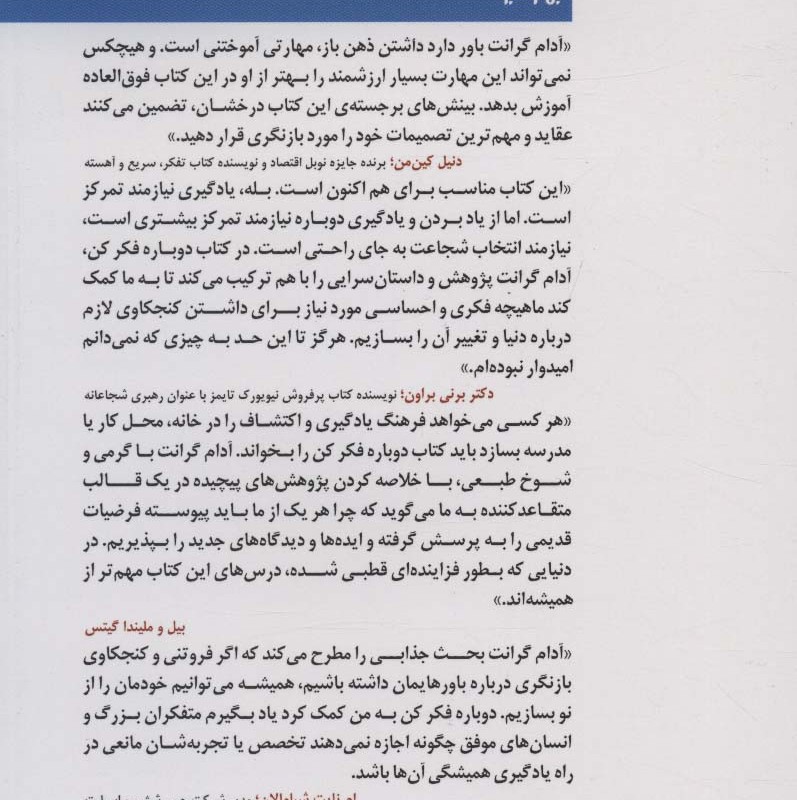 «آدام گرانت باور دارد داشتن ذهن باز، مهارتی آموختنی است. و هیچکس
نمی‌تواند این مهارت بسیار ارزشمند را بهتر از او در این کتاب فوق‌العاده
آموزش بدهد. بینش‌های برجسته‌ی این کتاب درخشان، تضمین می‌کنند
عقاید و مهم‌ترین تصمیمات خود را مورد بازنگری قرار دهید.»
دنیل کین‌من؛ برنده جایزه نوبل اقتصاد و نویسنده کتاب تفکر، سریع و آهسته
«این کتاب مناسب برای هم اکنون است. بله، یادگیری نیازمند تمرکز
است. اما از یاد بردن و یادگیری دوباره نیازمند تمرکز بیشتری است،
نیازمند انتخاب شجاعت به جای راحتی است. در کتاب دوباره فکر کن،
آدام گرانت پژوهش و داستان‌سرایی را با هم ترکیب می‌کند تا به ما کمک
کند ماهیچه فکری و احساسی مورد نیاز برای داشتن کنجکاوی لازم
درباره دنیا و تغییر آن را بسازیم. هرگز تا این حد به چیزی که نمی‌دانم
امیدوار نبوده‌ام.»
دکتر برنی براون؛ نویسنده کتاب پرفروش نیویورک تایمز با عنوان رهبری شجاعانه
«هر کسی می‌خواهد فرهنگ یادگیری و اکتشاف را در خانه، محل کار یا
مدرسه بسازد باید کتاب دوباره فکر کن را بخواند. آدام گرانت با گرمی و
شوخ طبعی، با خلاصه کردن پژوهش‌های پیچیده در یک قالب
متقاعدکننده به ما می‌گوید که چرا هر یک از ما باید پیوسته فرضیات
قدیمی را به پرسش گرفته و ایده‌ها و دیدگاه‌های جدید را بپذیریم. در
دنیایی که بطور فزاینده‌ای قطبی شده، درس‌های این کتاب مهم‌تر از
همیشه‌اند.»
بیل و ملیندا گیتس
«آدام گرانت بحث جذابی را مطرح می‌کند که اگر فروتنی و کنجکاوی
بازنگری درباره باورهایمان داشته باشیم، همیشه می‌توانیم خودمان را از
نو بسازیم. دوباره فکر کن به من کمک کرد یاد بگیرم متفکران بزرگ و
انسان‌های موفق چگونه اجازه نمی‌دهند تخصص یا تجربه‌شان مانعی در
راه یادگیری همیشگی آن‌ها باشد.